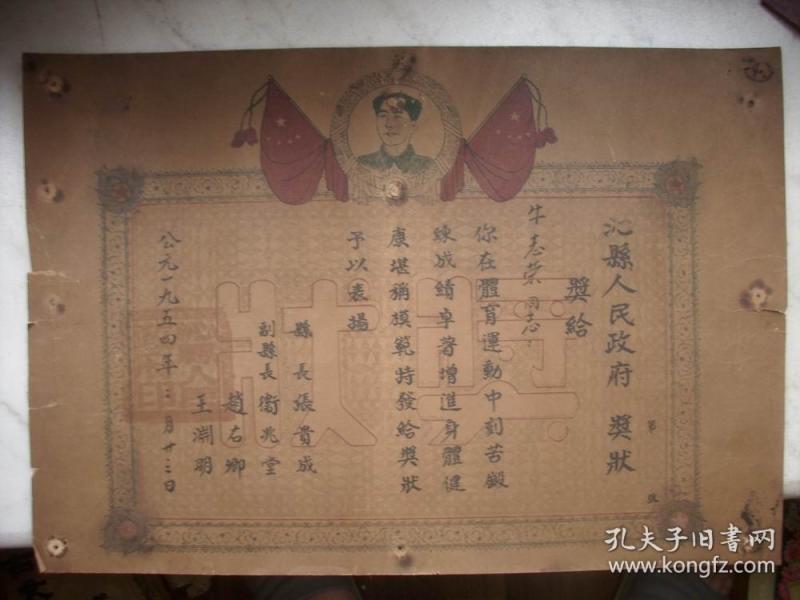 沁縣人民政府 獎狀
第 號
獎給
牛志榮同志:
你在體育運動中刻苦鍛
練成績卓著增進身體健
康堪稱模範特發給獎狀
予以表揚
縣長張貴成
副縣長衞兆堂
趙右鄉
王淵明
公元一九五四年三月廿三日
獎狀
孔夫子旧书网
www.kongfz.com